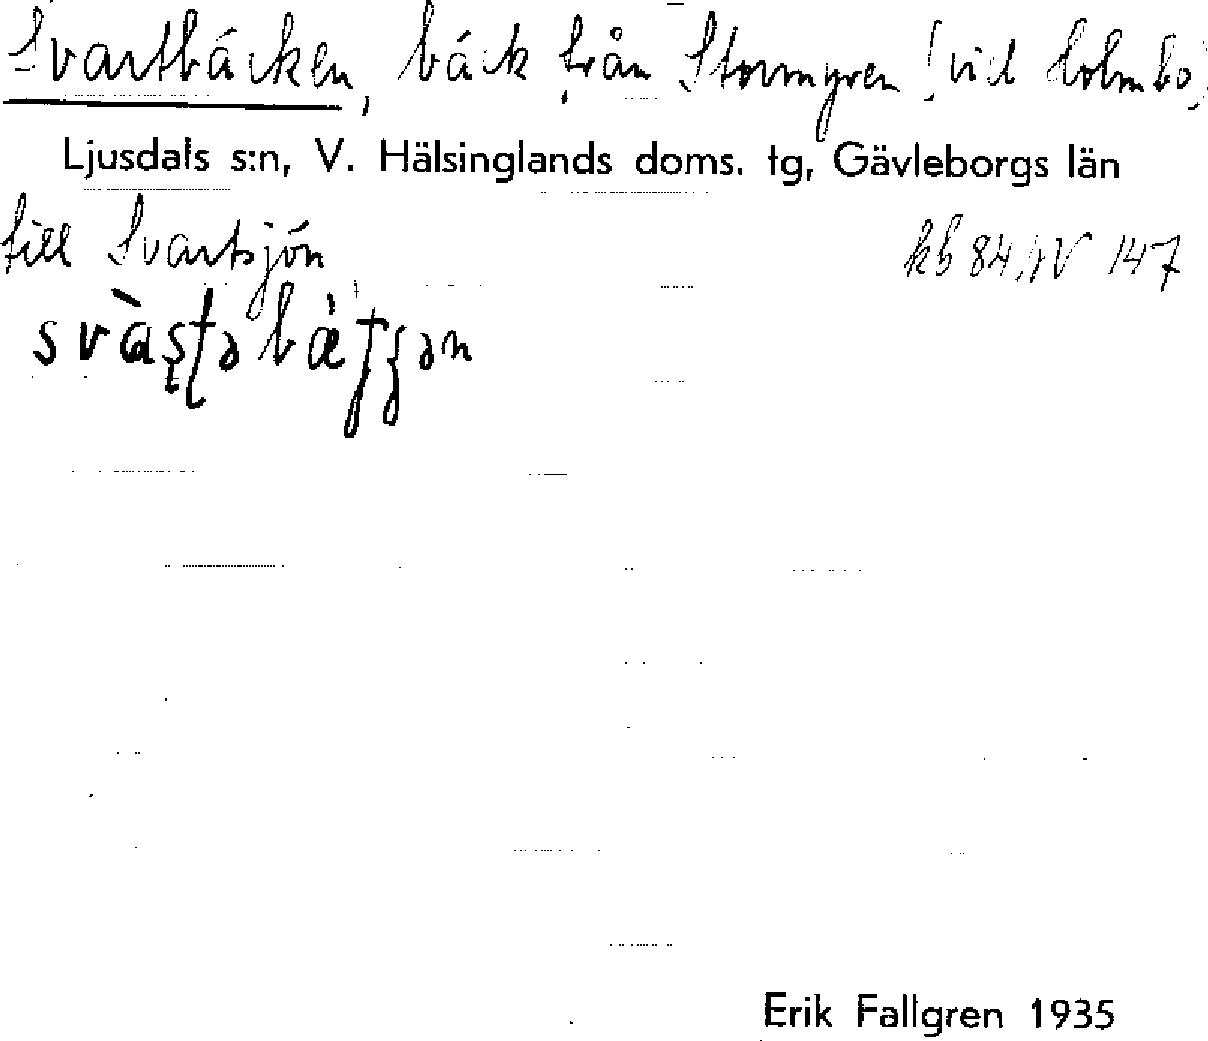 Svartbäcken, bäck från Stormyren (vid Holmbo)
Ljusdals s:n, V. Hälsinglands doms. tg, Gävleborgs län
till Svartsjön kb 84, IV 147
Erik Fallgren 1935